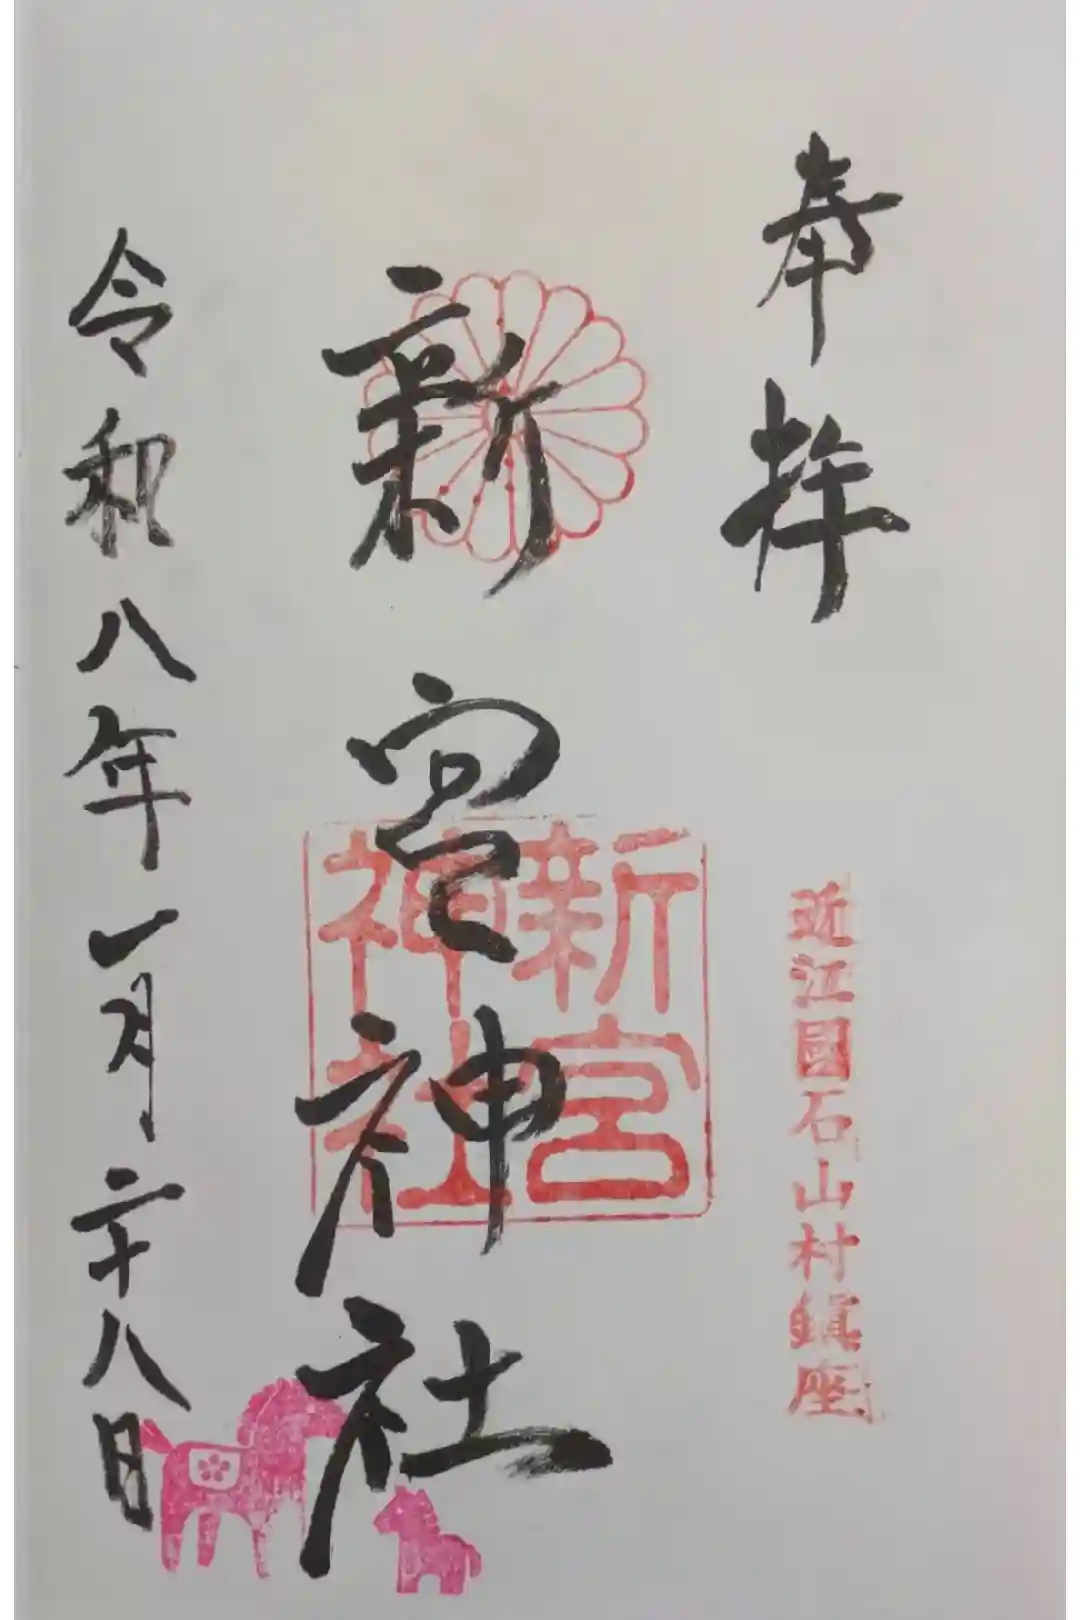 奉拝
近江國石山村鎮座
新宮神社
新宮神社
令和八年一月二十八日